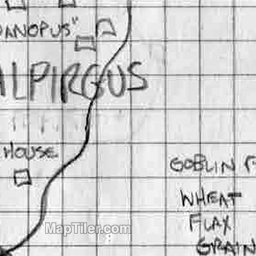 DANOPUS"
ALPIRGUS
HOUSE
GOBLIN F
WHEAT
FLAX
GRAIN
MapTiler.com